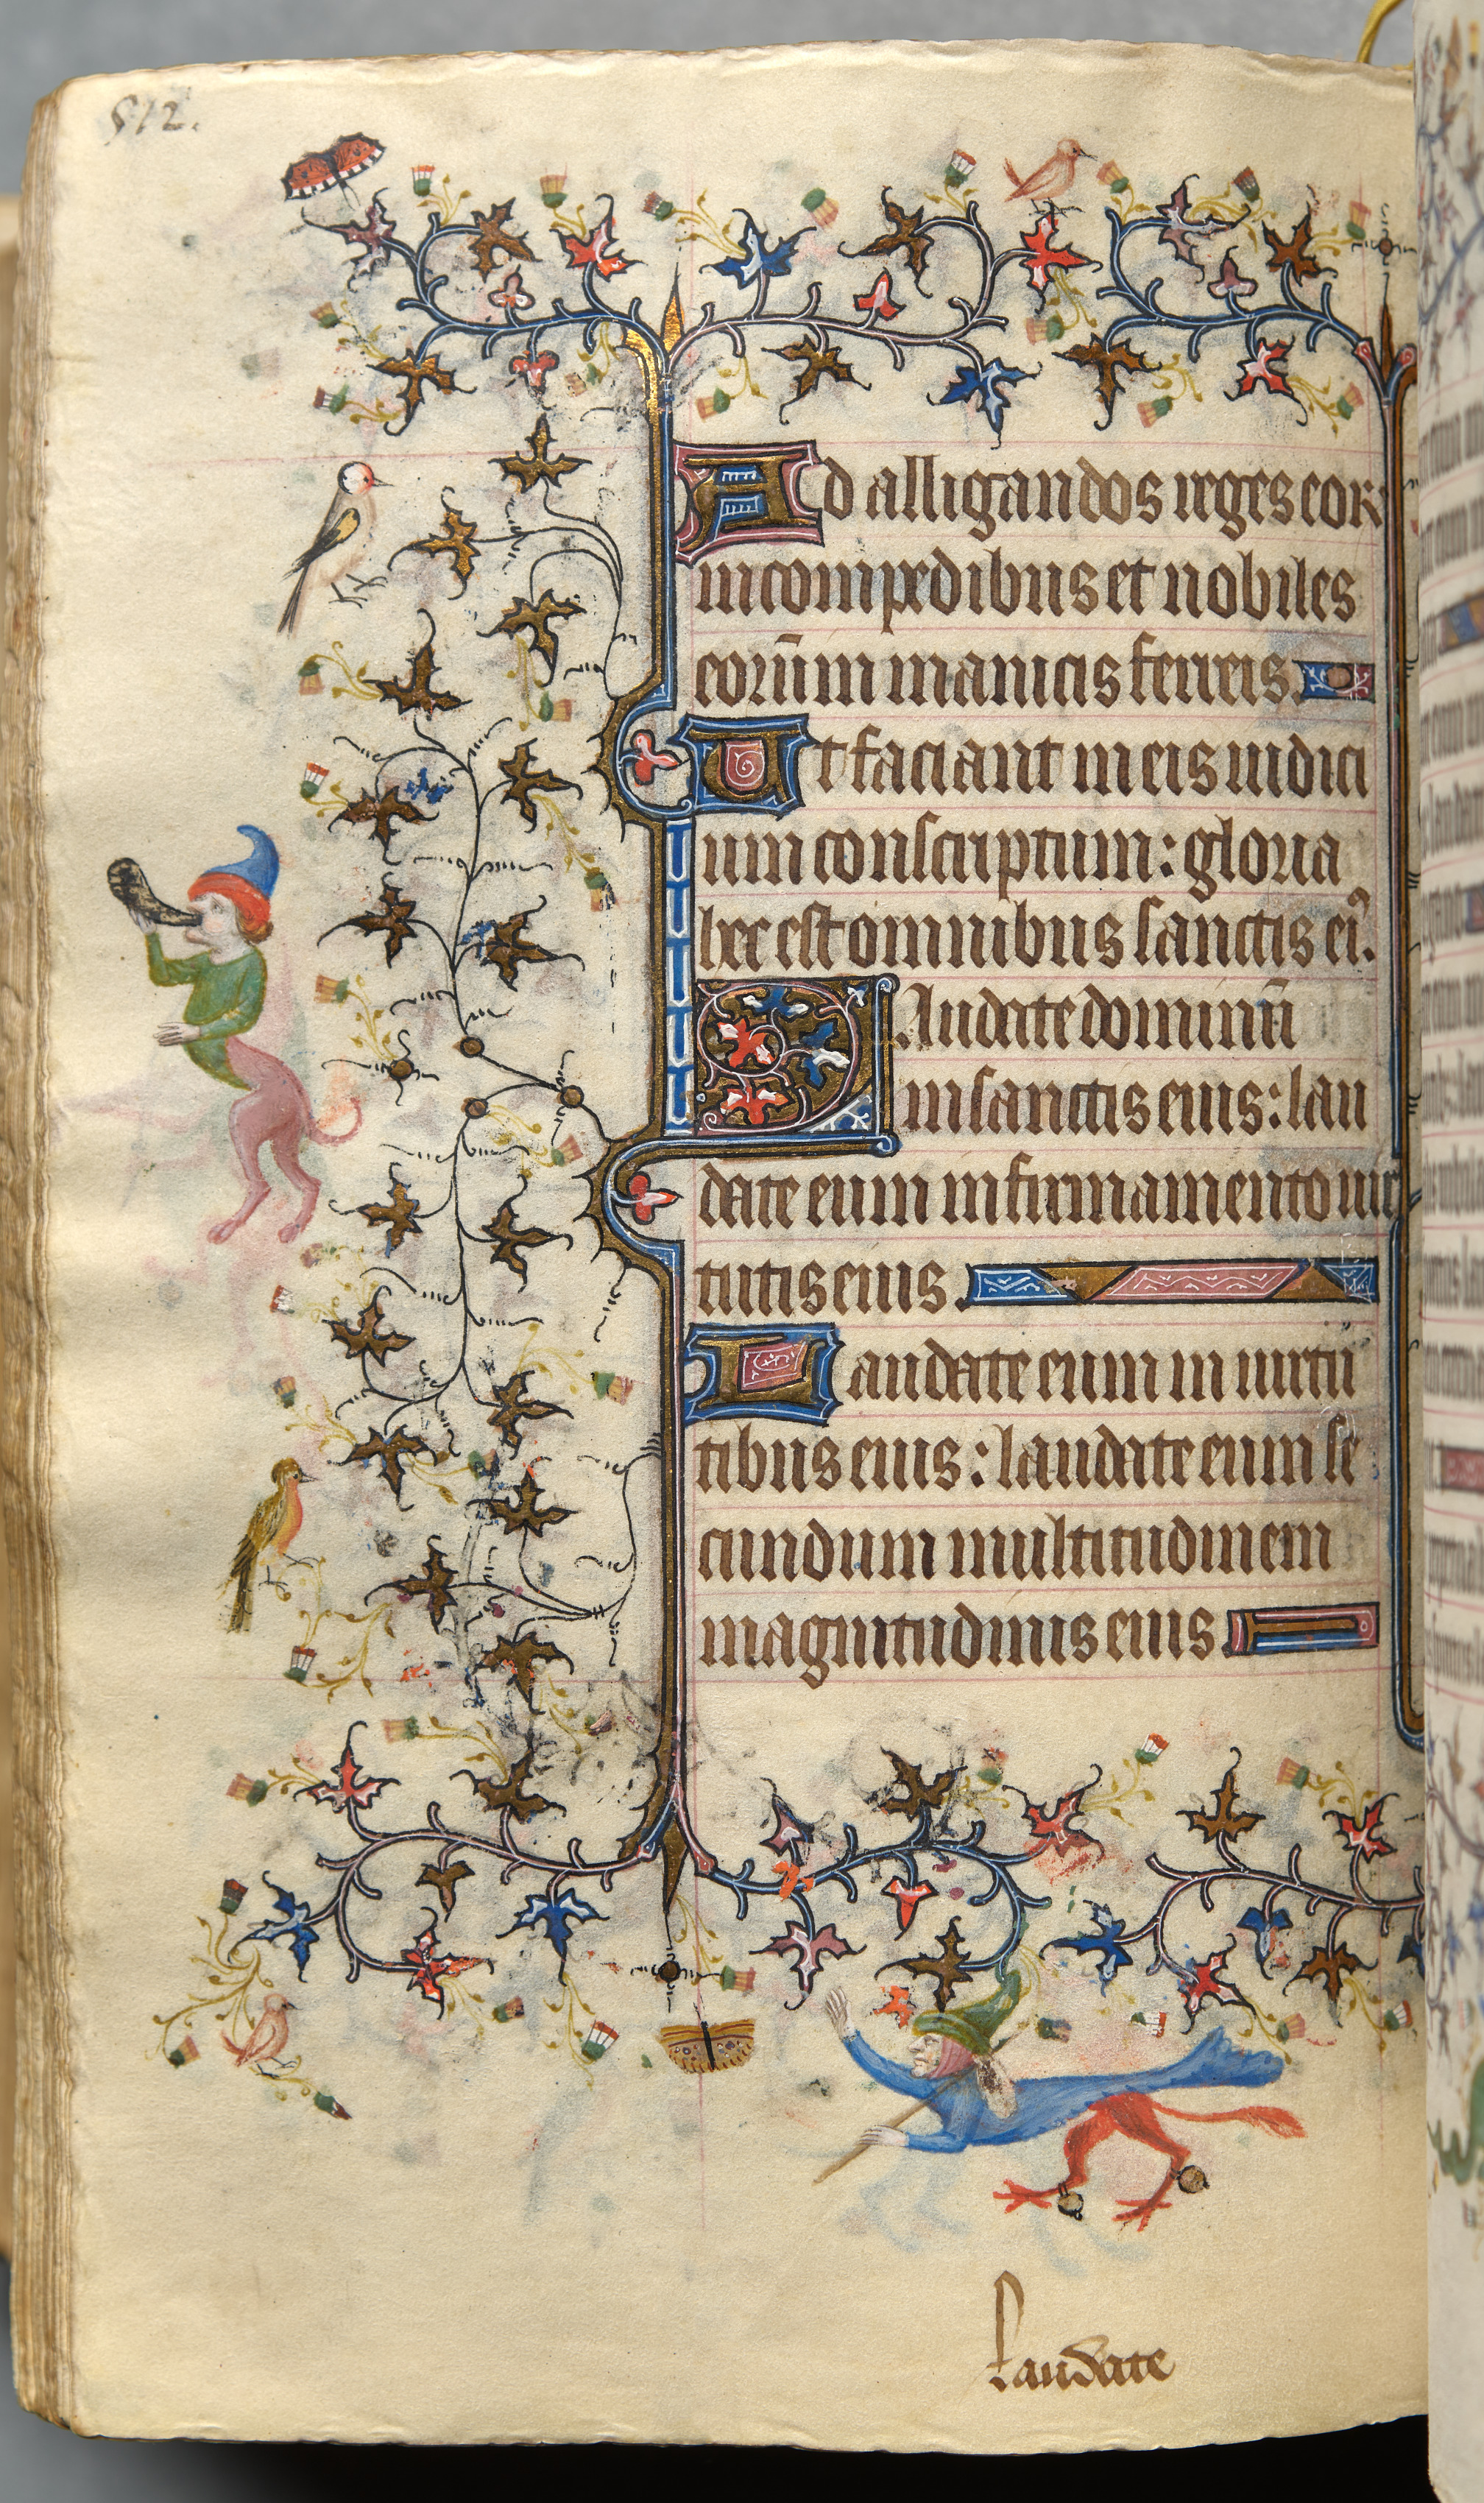 512.
Ad alligandos reges eor
in compedibus et nobiles
eorūm in manicis ferreis.
Ut faciant in eis iudici
um conscriptum: gloria
hec est omnibus sanctis eiꝰ.
Laudate dominū
in sanctis eius: lau
date eum in firmamento uir
tutis eius.
Laudate eum in uirtu
tibus eius: laudate eum se
cundum multitudinem
magnitudinis eius.
laudate